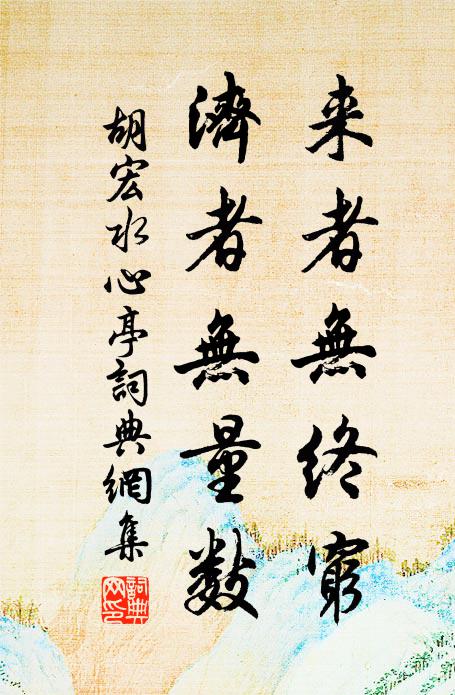 来者無終窮
濟者無量數
胡宏水心亭詞典網集
詞典
网印